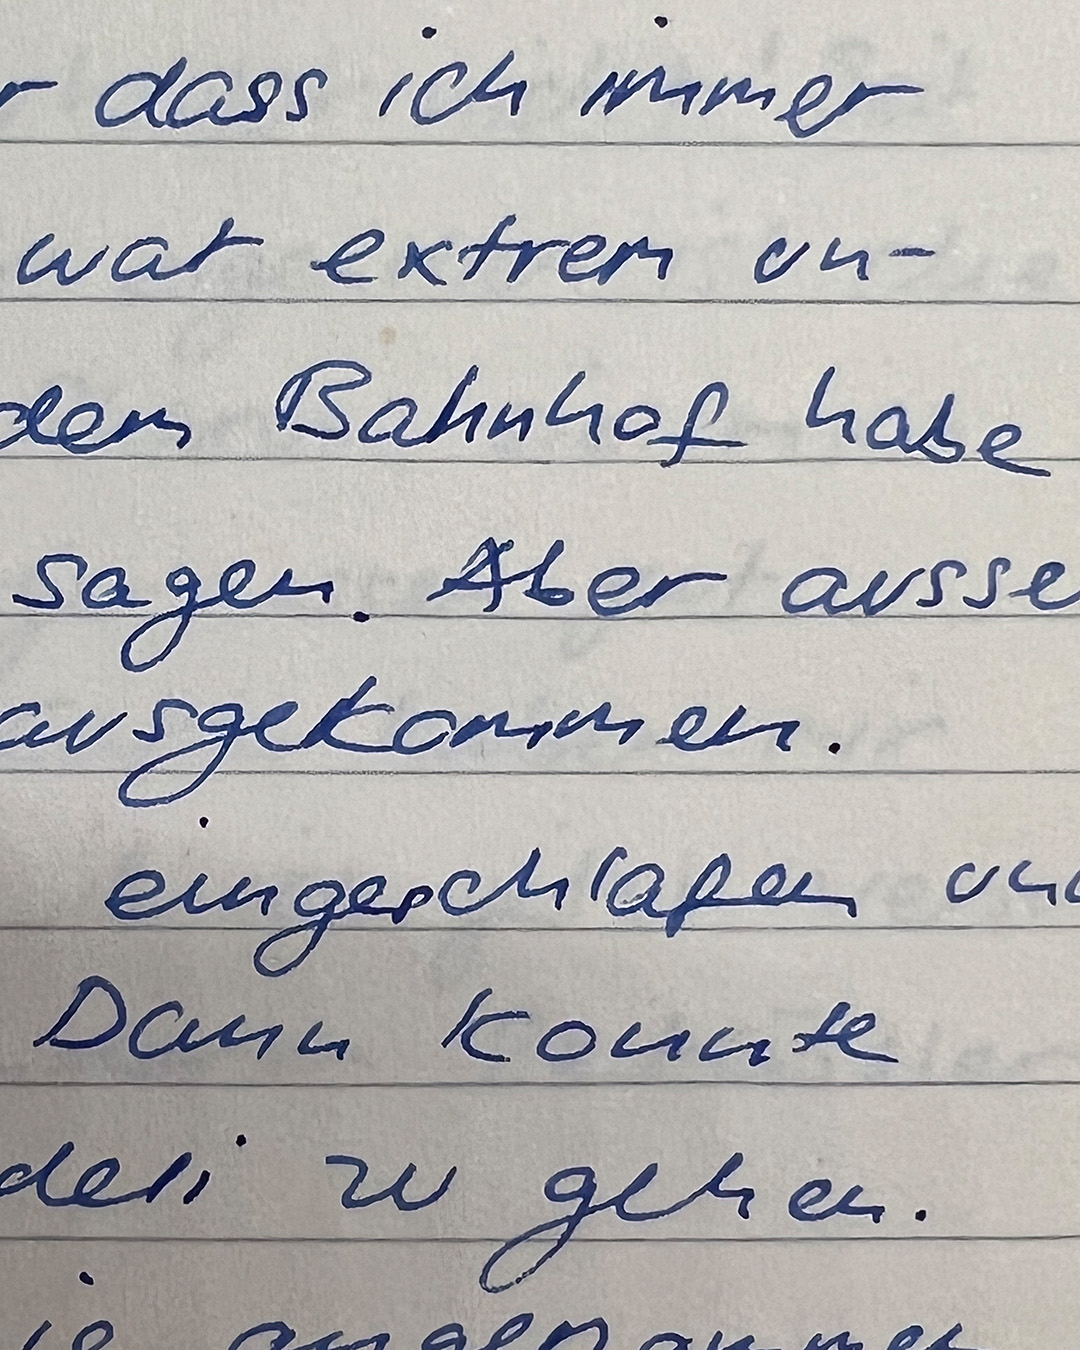 dass ich immer
war extrem un-
dem Bahnhof habe
sagen. Aber ausse
ausgekommen.
eingeschlafen und
Dann konnte
deli zu gehen.